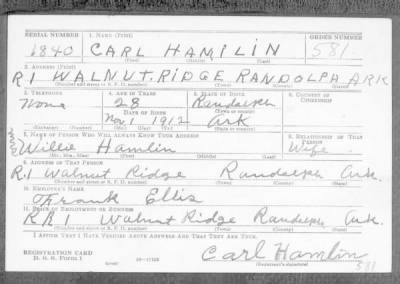 SERIAL NUMBER 1. NAME (Print) ORDER NUMBER
1840 CARL HAMLIN 581
(First) (Middle) (Last)
2. ADDRESS (Print)
R1 WALNUT RIDGE RANDOLPH ARK
(Number and street or R. F. D. number) (Town) (County) (State)
3. TELEPHONE 4. AGE IN YEARS 5. PLACE OF BIRTH 6. COUNTRY OF CITIZENSHIP
None 28 Randolph
DATE OF BIRTH (Town or county)
Nov 1 1912 Ark
(Exchange) (Number) (Mo.) (Day) (Yr.) (State or country)
7. NAME OF PERSON WHO WILL ALWAYS KNOW YOUR ADDRESS 8. RELATIONSHIP OF THAT PERSON
Willie Hamlin Wife
(Mr., Mrs., Miss) (First) (Middle) (Last)
9. ADDRESS OF THAT PERSON
R.1 Walnut Ridge Randolph Ark.
(Number and street or R. F. D. number) (Town) (County) (State)
10. EMPLOYER'S NAME
Frank Ellis
11. PLACE OF EMPLOYMENT OR BUSINESS
RR 1 Walnut Ridge Randolph Ark.
(Number and street or R. F. D. number) (Town) (County) (State)
I AFFIRM THAT I HAVE VERIFIED ABOVE ANSWERS AND THAT THEY ARE TRUE.
REGISTRATION CARD
D. S. S. Form 1
(over) 16—17105
Carl Hamlin
(Registrant's signature)
581